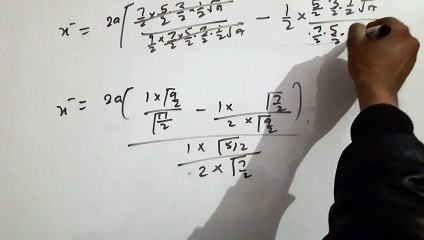 x̄ = 2a( (7/2 × 5/2 · 3/2 · 1/2 √π)/(9/2 × 7/2 × 5/2 · 3/2 · 1/2 √π) − 1/2 × (5/2 · 3/2 · 1/2 √π)/(7/2 · 5/2 ·
x̄ = 2a( (1 × Γ9/2)/(Γ11/2) − (1 × Γ7/2)/(2 × Γ9/2) )
1 × Γ5/2
2 × Γ7/2